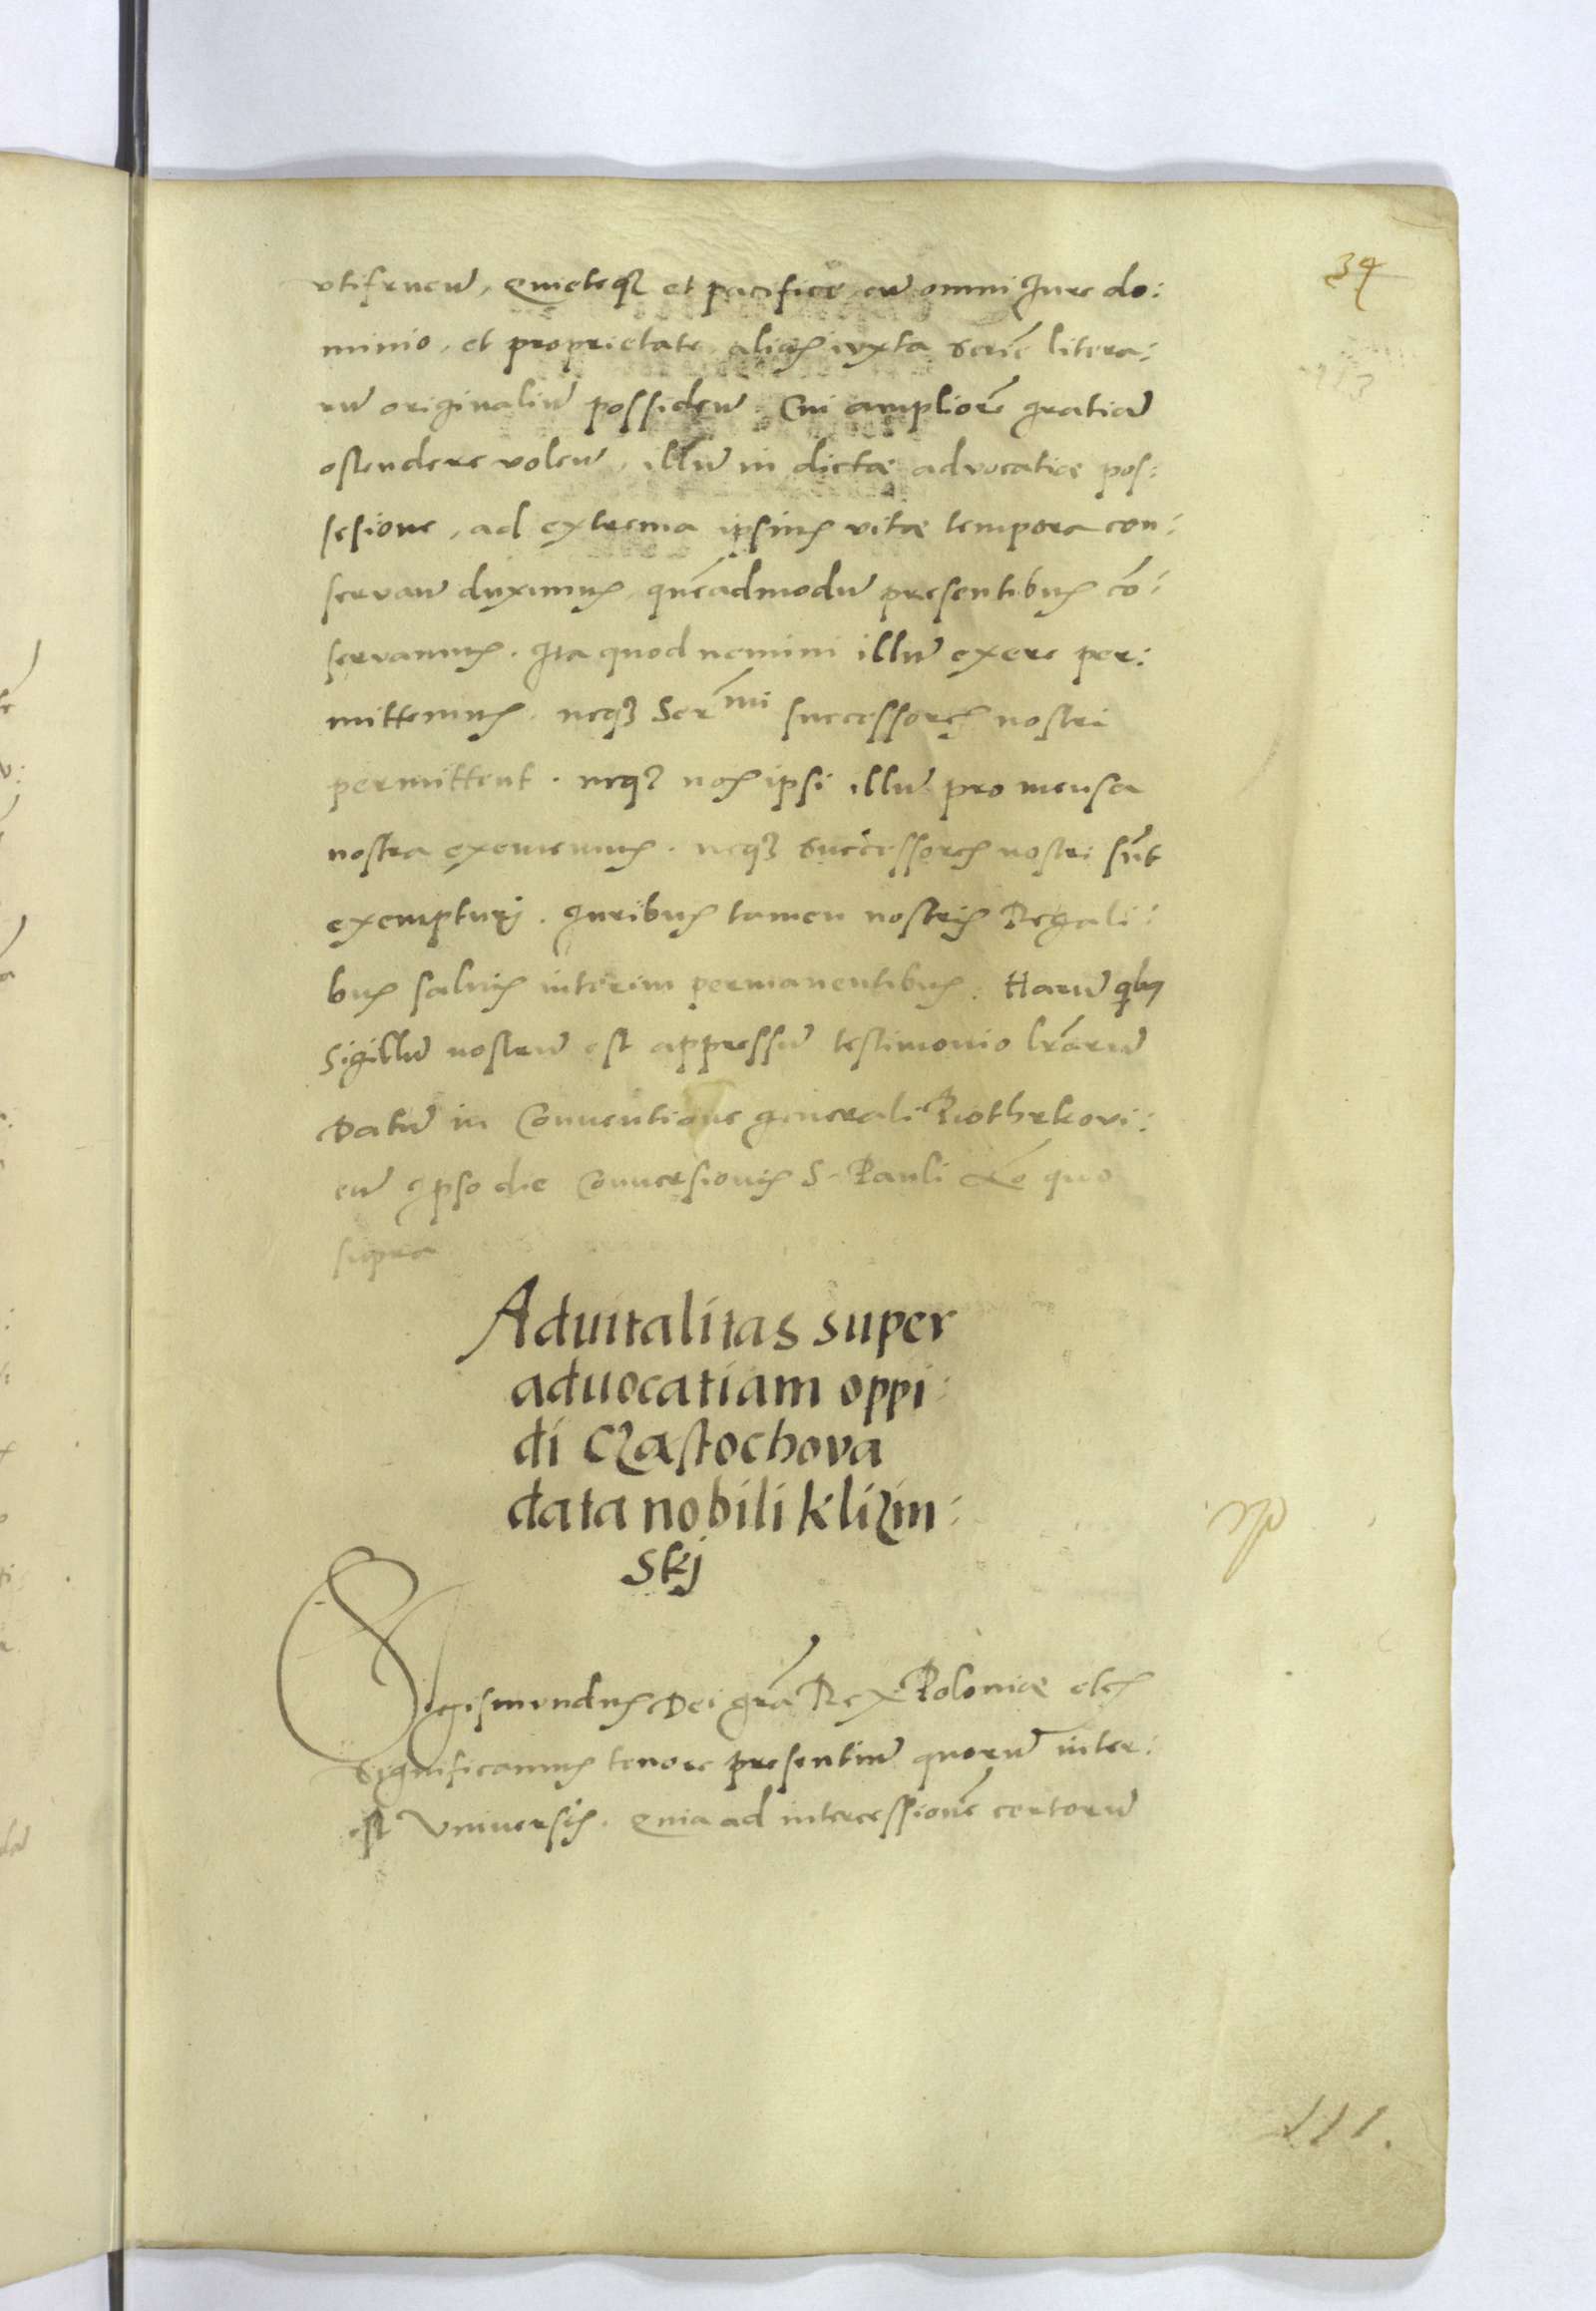 34
utifruen̄, Quieteqꝫ et pacifice, cū omni Jure do:
minio, et proprietate, aliis iuxta seriē litera:
rū originaliū possiden̄. Cui ampliorē gratiā
ostendere volen̄, illū in dictæ advocatiæ pos:
sesione, ad extrema ipsius vitæ tempora con:
servan̄ duximus, quēadmodū presentibus cō:
servamus. Ita quod nemini illū exere per:
mittemus. neqꝫ Serᵐⁱ successores nostri
permittent. neqꝫ nos ipsi illū pro mensa
nostra exememus. neqꝫ successores nostri sūt
exempturj. Juribus tamen nostris Regali:
bus salvis interim permanentibus. Harū qibꝰ
Sigillū nostrū est appressū testimonio lrārū
Datū in Conventione generali Piothrkovi:
en̄ Ipso die Conversionis S. Pauli Ao quo
supra
Aduitalitas super
aduocatiam oppi:
di Cząstochova
data nobili Klizin:
skj
Sigismundus Dei grā Rex Poloniæ etcs
Significamus tenore presentiū quorū inter:
est Universis. Quia ad intercessionē certorū
111.